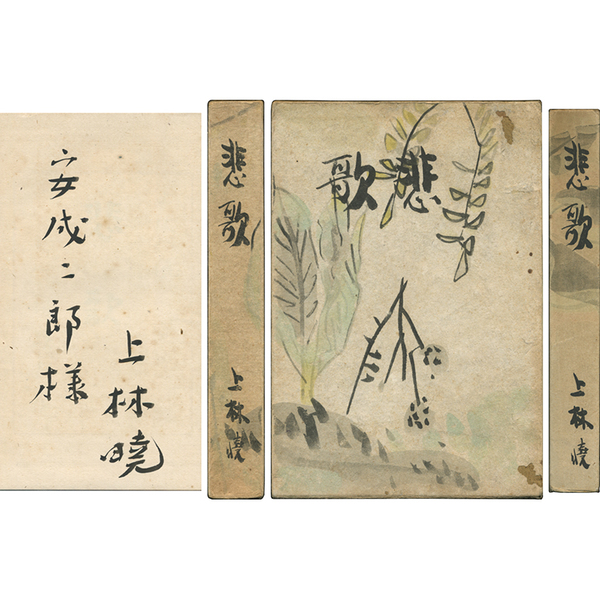 上林曉
安成二郎様
悲歌
上林曉
悲歌
悲歌
上林曉